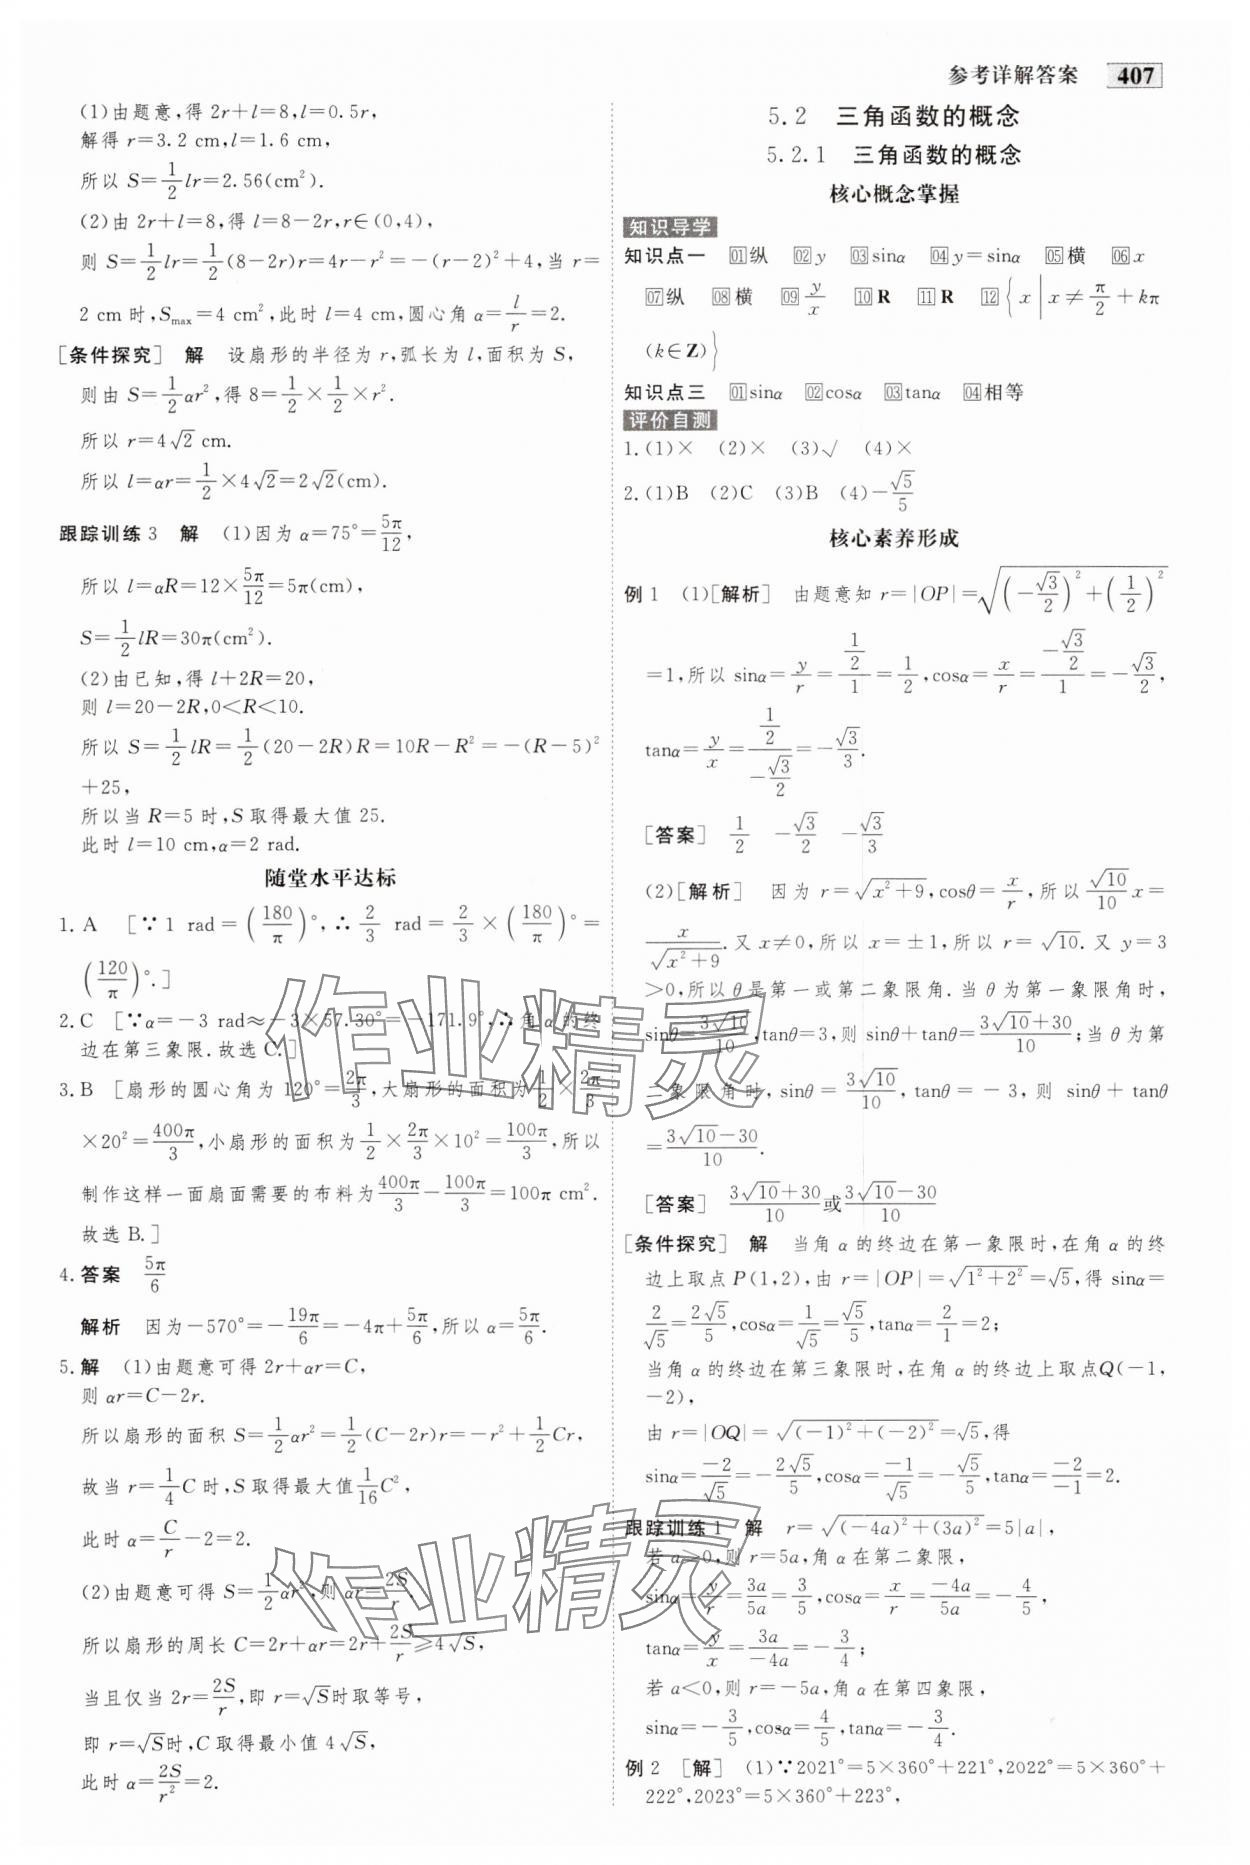 参考详解答案 407
(1)由题意,得 2r+l=8,l=0.5r,
解得 r=3.2 cm,l=1.6 cm,
所以 S=1/2 lr=2.56(cm²).
(2)由 2r+l=8,得 l=8-2r,r∈(0,4),
则 S=1/2 lr=1/2(8-2r)r=4r-r²=-(r-2)²+4,当 r=
2 cm 时,Smax=4 cm²,此时 l=4 cm,圆心角 α=l/r=2.
[条件探究] 解 设扇形的半径为 r,弧长为 l,面积为 S,
则由 S=1/2 αr²,得 8=1/2×1/2×r².
所以 r=4√2 cm.
所以 l=αr=1/2×4√2=2√2(cm).
跟踪训练 3 解 (1)因为 α=75°=5π/12,
所以 l=αR=12×5π/12=5π(cm),
S=1/2 lR=30π(cm²).
(2)由已知,得 l+2R=20,
则 l=20-2R,0<R<10.
所以 S=1/2 lR=1/2(20-2R)R=10R-R²=-(R-5)²
+25,
所以当 R=5 时,S 取得最大值 25.
此时 l=10 cm,α=2 rad.
随堂水平达标
1. A [∵1 rad=(180/π)°,∴2/3 rad=2/3×(180/π)°=
(120/π)°.]
2. C [∵α=-3 rad≈-3×57.30°=-171.9°,∴角 α 的终
边在第三象限.故选 C.]
3. B [扇形的圆心角为 120°=2π/3,大扇形的面积为1/2×2π/3
×20²=400π/3,小扇形的面积为1/2×2π/3×10²=100π/3,所以
制作这样一面扇面需要的布料为400π/3-100π/3=100π cm².
故选 B.]
4. 答案 5π/6
解析 因为-570°=-19π/6=-4π+5π/6,所以 α=5π/6.
5. 解 (1)由题意可得 2r+αr=C,
则 αr=C-2r.
所以扇形的面积 S=1/2 αr²=1/2(C-2r)r=-r²+1/2 Cr,
故当 r=1/4 C 时,S 取得最大值1/16 C²,
此时 α=C/r-2=2.
(2)由题意可得 S=1/2 αr²,则 αr=2S/r.
所以扇形的周长 C=2r+αr=2r+2S/r≥4√S,
当且仅当 2r=2S/r,即 r=√S时取等号,
即 r=√S时,C 取得最小值 4√S,
此时 α=2S/r²=2.
5.2 三角函数的概念
5.2.1 三角函数的概念
核心概念掌握
知识导学
知识点一 01纵 02y 03sinα 04y=sinα 05横 06x
07纵 08横 09y/x 10R 11R 12{x|x≠π/2+kπ
(k∈Z)}
知识点三 01sinα 02cosα 03tanα 04相等
评价自测
1.(1)× (2)× (3)√ (4)×
2.(1)B (2)C (3)B (4)-√5/5
核心素养形成
例 1 (1)[解析] 由题意知 r=|OP|=√((-√3/2)²+(1/2)²)
=1,所以 sinα=y/r=(1/2)/1=1/2,cosα=x/r=(-√3/2)/1=-√3/2,
tanα=y/x=(1/2)/(-√3/2)=-√3/3.
[答案] 1/2 -√3/2 -√3/3
(2)[解析] 因为 r=√(x²+9),cosθ=x/r,所以√10/10 x=
x/√(x²+9).又 x≠0,所以 x=±1,所以 r=√10.又 y=3
>0,所以 θ 是第一或第二象限角.当 θ 为第一象限角时,
sinθ=3√10/10,tanθ=3,则 sinθ+tanθ=(3√10+30)/10;当 θ 为第
二象限角时,sinθ=3√10/10,tanθ=-3,则 sinθ+tanθ
=(3√10-30)/10.
[答案] (3√10+30)/10或(3√10-30)/10
[条件探究] 解 当角 α 的终边在第一象限时,在角 α 的终
边上取点 P(1,2),由 r=|OP|=√(1²+2²)=√5,得 sinα=
2/√5=2√5/5,cosα=1/√5=√5/5,tanα=2/1=2;
当角 α 的终边在第三象限时,在角 α 的终边上取点Q(-1,
-2),
由 r=|OQ|=√((-1)²+(-2)²)=√5,得
sinα=-2/√5=-2√5/5,cosα=-1/√5=-√5/5,tanα=-2/-1=2.
跟踪训练 1 解 r=√((-4a)²+(3a)²)=5|a|,
若 a>0,则 r=5a,角 α 在第二象限,
sinα=y/r=3a/5a=3/5,cosα=x/r=-4a/5a=-4/5,
tanα=y/x=3a/-4a=-3/4;
若 a<0,则 r=-5a,角 α 在第四象限,
sinα=-3/5,cosα=4/5,tanα=-3/4.
例 2 [解] (1)∵2021°=5×360°+221°,2022°=5×360°+
222°,2023°=5×360°+223°,
作业精灵
作业精灵